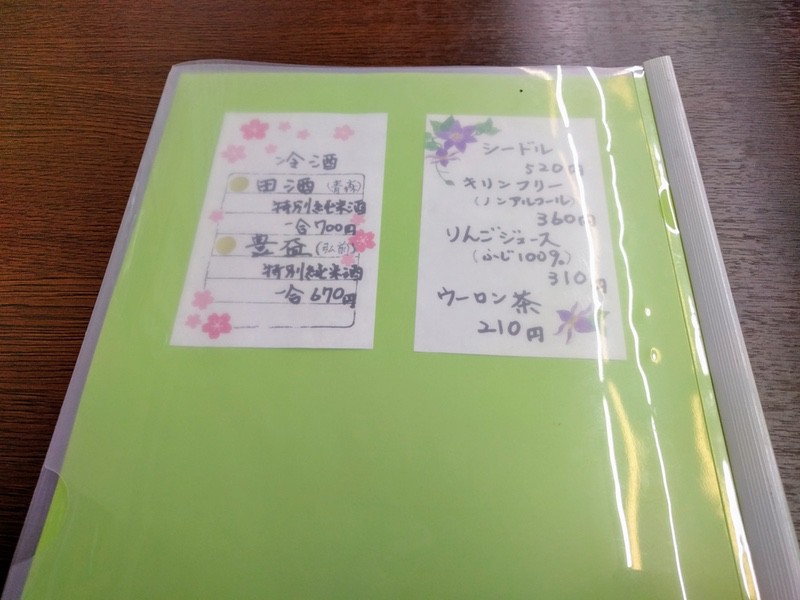 冷酒
田酒(青森)
特別純米酒
一合700円
豊盃(弘前)
特別純米酒
一合670円
シードル
520円
キリンフリー
(ノンアルコール)
360円
りんごジュース
(ふじ100%)
310円
ウーロン茶
210円